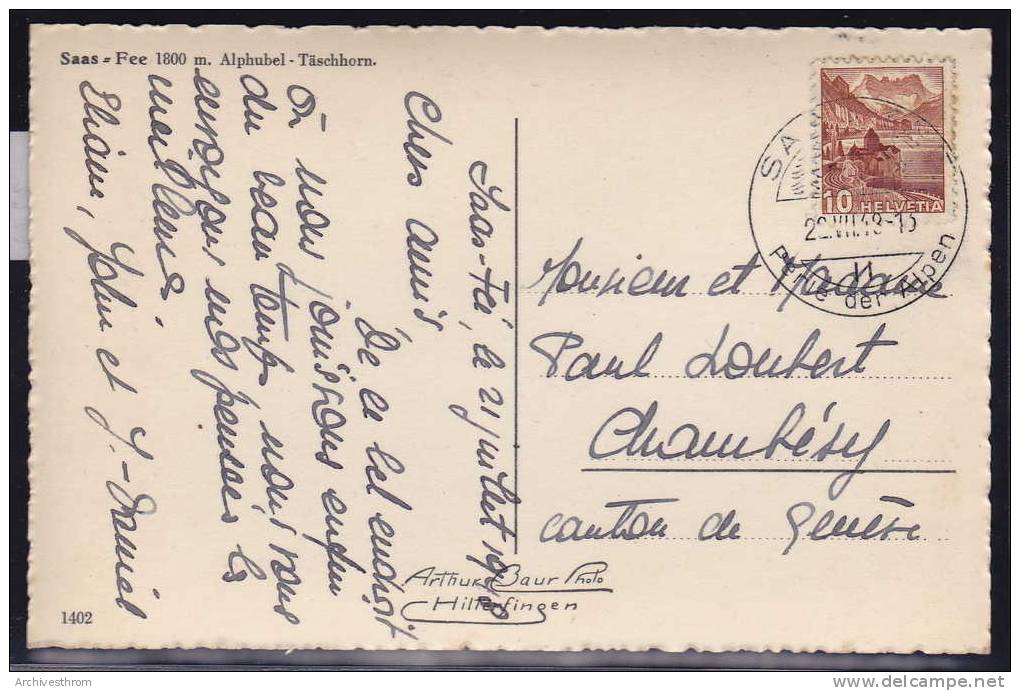 Saas = Fee 1800 m. Alphubel - Täschhorn.
Saas-Fé, le 21 juillet 1948
Chers amis,
De ce bel endroit
où nous jouissons enfin
du beau temps nous vous
envoyons nos pensées les
meilleures.
Eliane, John et J.-Daniel
10 HELVETIA
SA
VII.48-13
Perle der Alpen
Monsieur et Madame
Paul Loubert
Chambésy
canton de Genève
Arthur Baur Photo
Hilterfingen
1402
Archivesthrom
www.delcampe.net